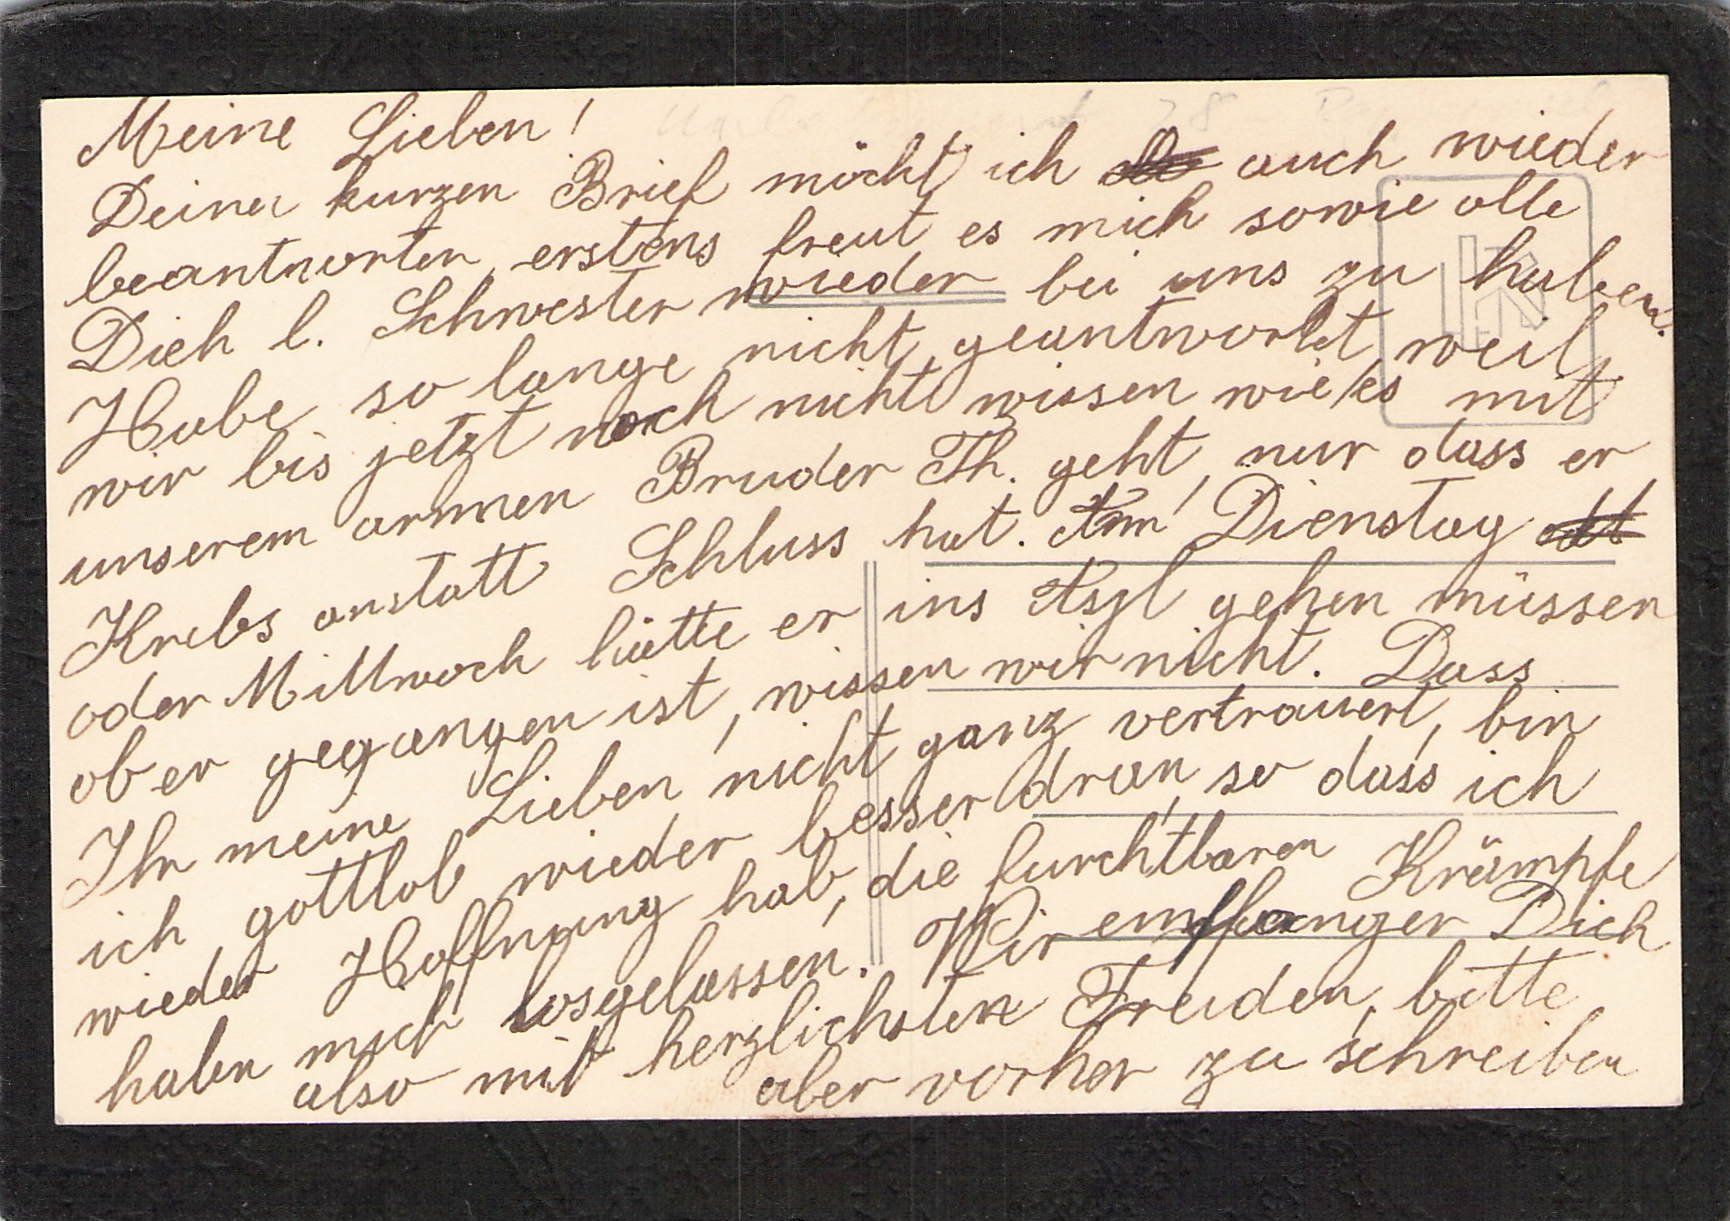 Meine Lieben!
Deinen kurzen Brief möcht ich auch wieder
beantworten, erstens freut es mich sowie alle
Dich l. Schwester wieder bei uns zu haben.
Habe so lange nicht geantwortet, weil
wir bis jetzt noch nicht wissen wie es mit
unserem armen Bruder Th. geht, nur dass er
Krebs anstatt Schluss hat. Am Dienstag
oder Mittwoch hätte er ins Asyl gehen müssen
ob er gegangen ist, wissen wir nicht. Dass
Ihr meine Lieben nicht ganz vertrauert, bin
ich gottlob wieder besser dran, so dass ich
wieder Hoffnung hab, die furchtbaren Krämpfe
haben mich losgelassen. Wir empfangen Dich
also mit herzlichsten Freuden, bitte
aber vorher zu schreiben